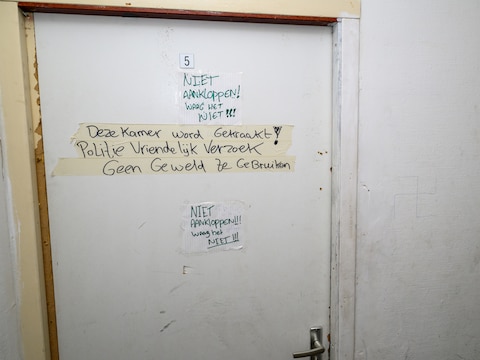 5
NIET
AANKLOPPEN!
WAAG HET
NIET!!!
Deze Kamer word Gekraakt!
Politie Vriendelijk Verzoek
Geen Geweld te Gebruiken
NIET
AANKLOPPEN!!!
waag het
NIET!!!